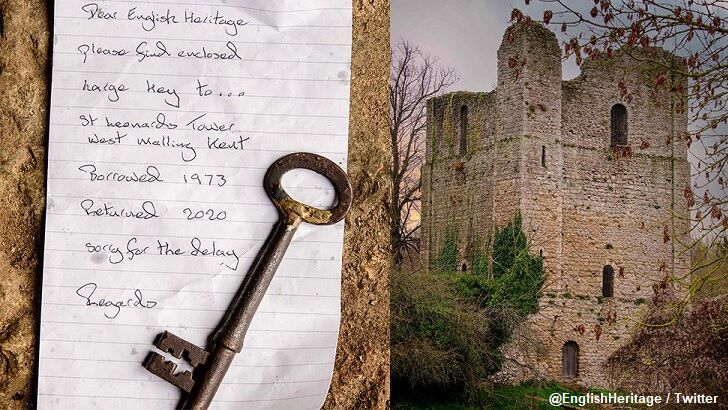 Dear English Heritage
please find enclosed
large key to...
St Leonards Tower
West Malling Kent
Borrowed 1973
Returned 2020
sorry for the delay
Regards
@EnglishHeritage / Twitter